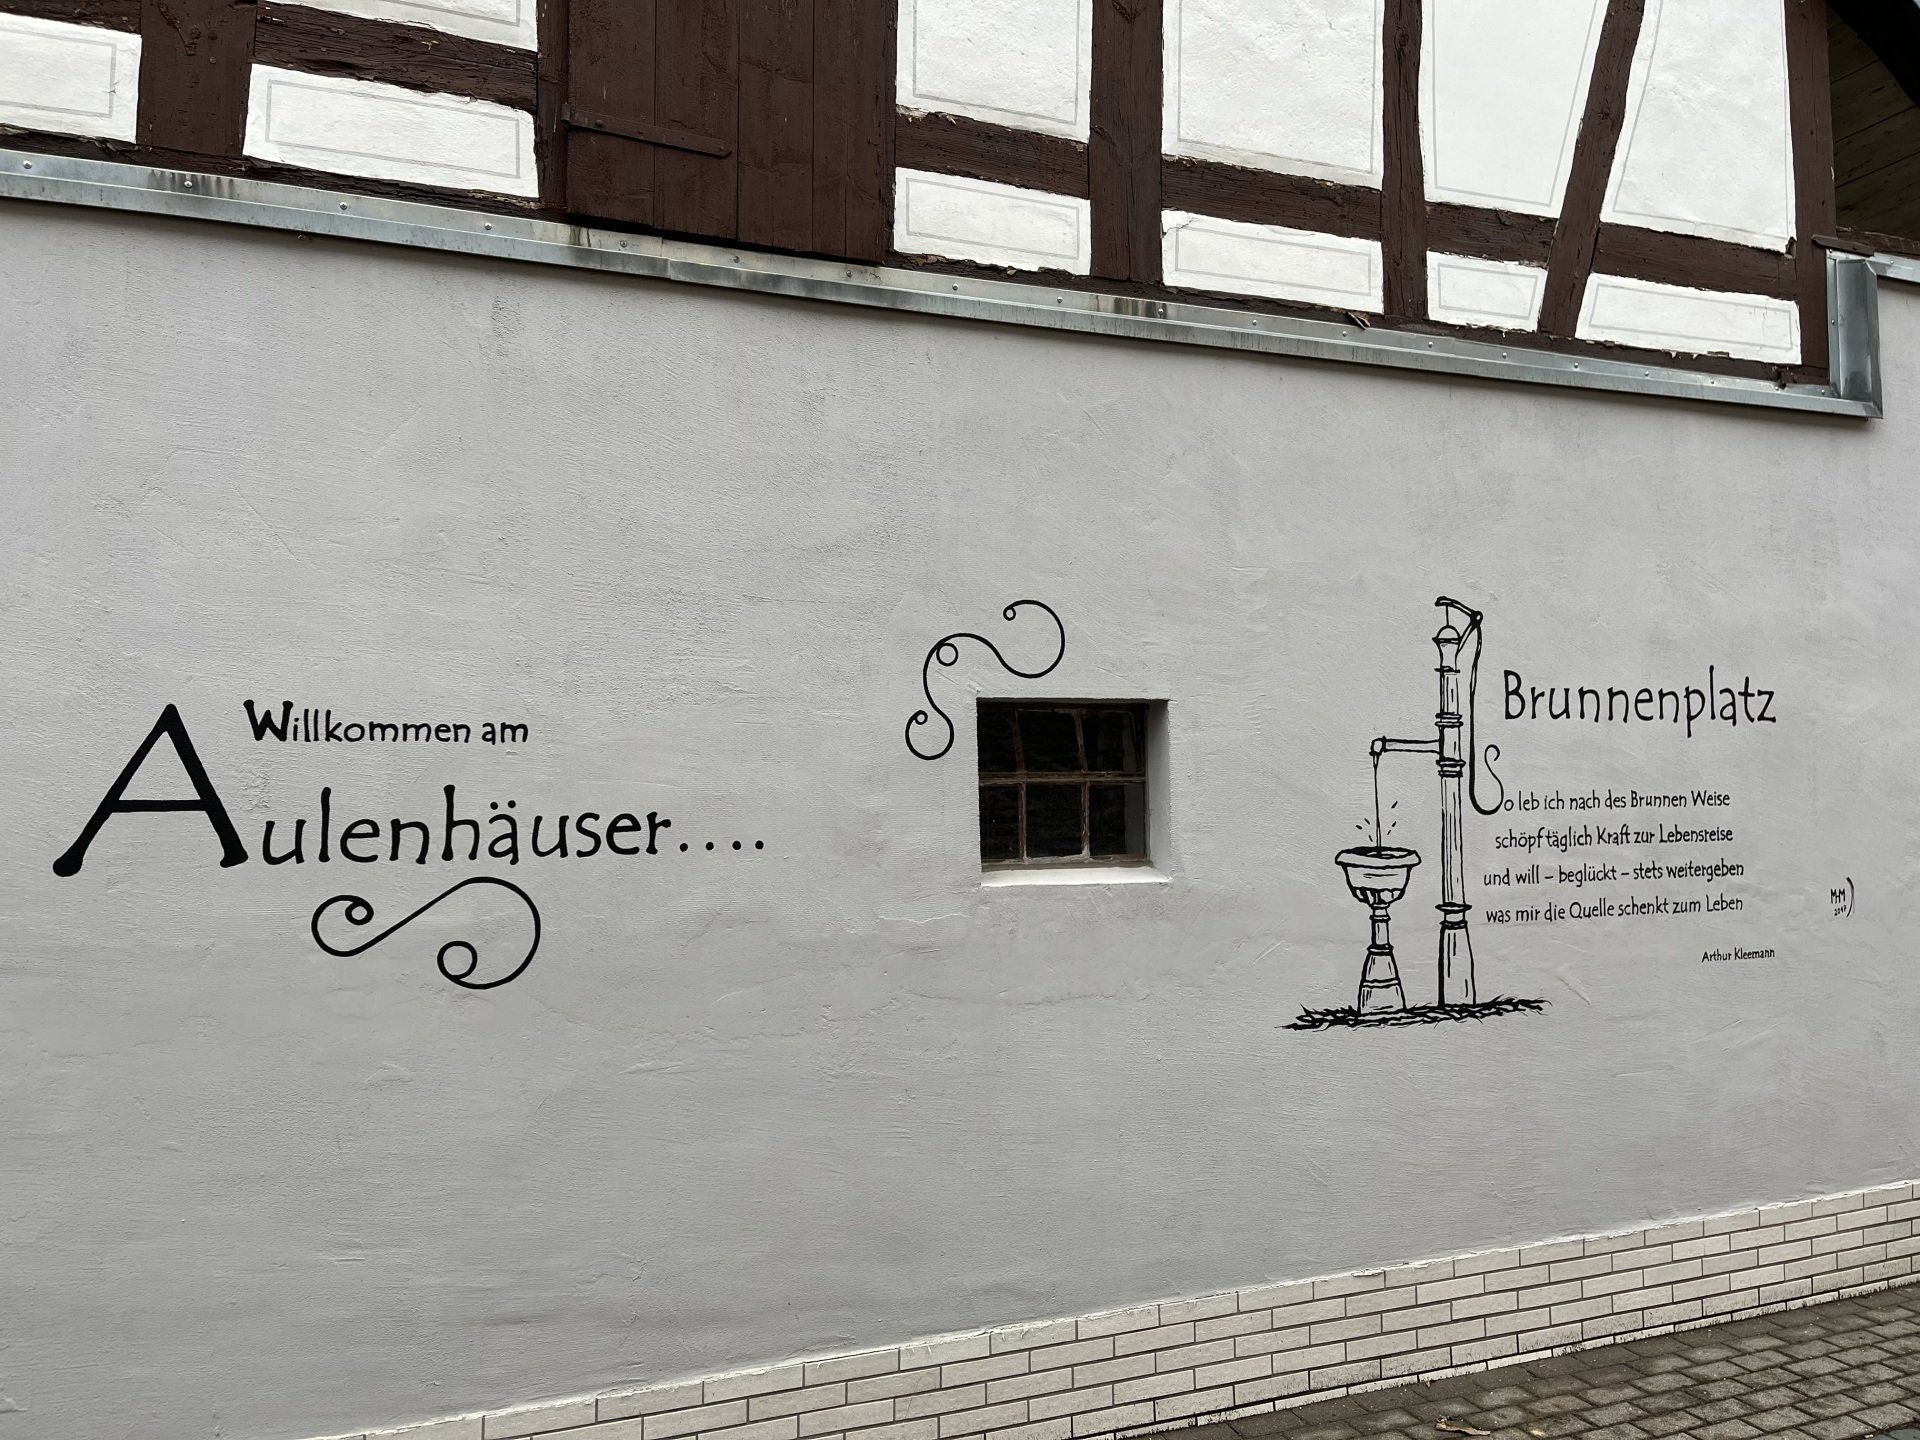 Willkommen am
Aulenhäuser....
Brunnenplatz
So leb ich nach des Brunnen Weise
schöpf täglich Kraft zur Lebensreise
und will – beglückt – stets weitergeben
was mir die Quelle schenkt zum Leben
Arthur Kleemann